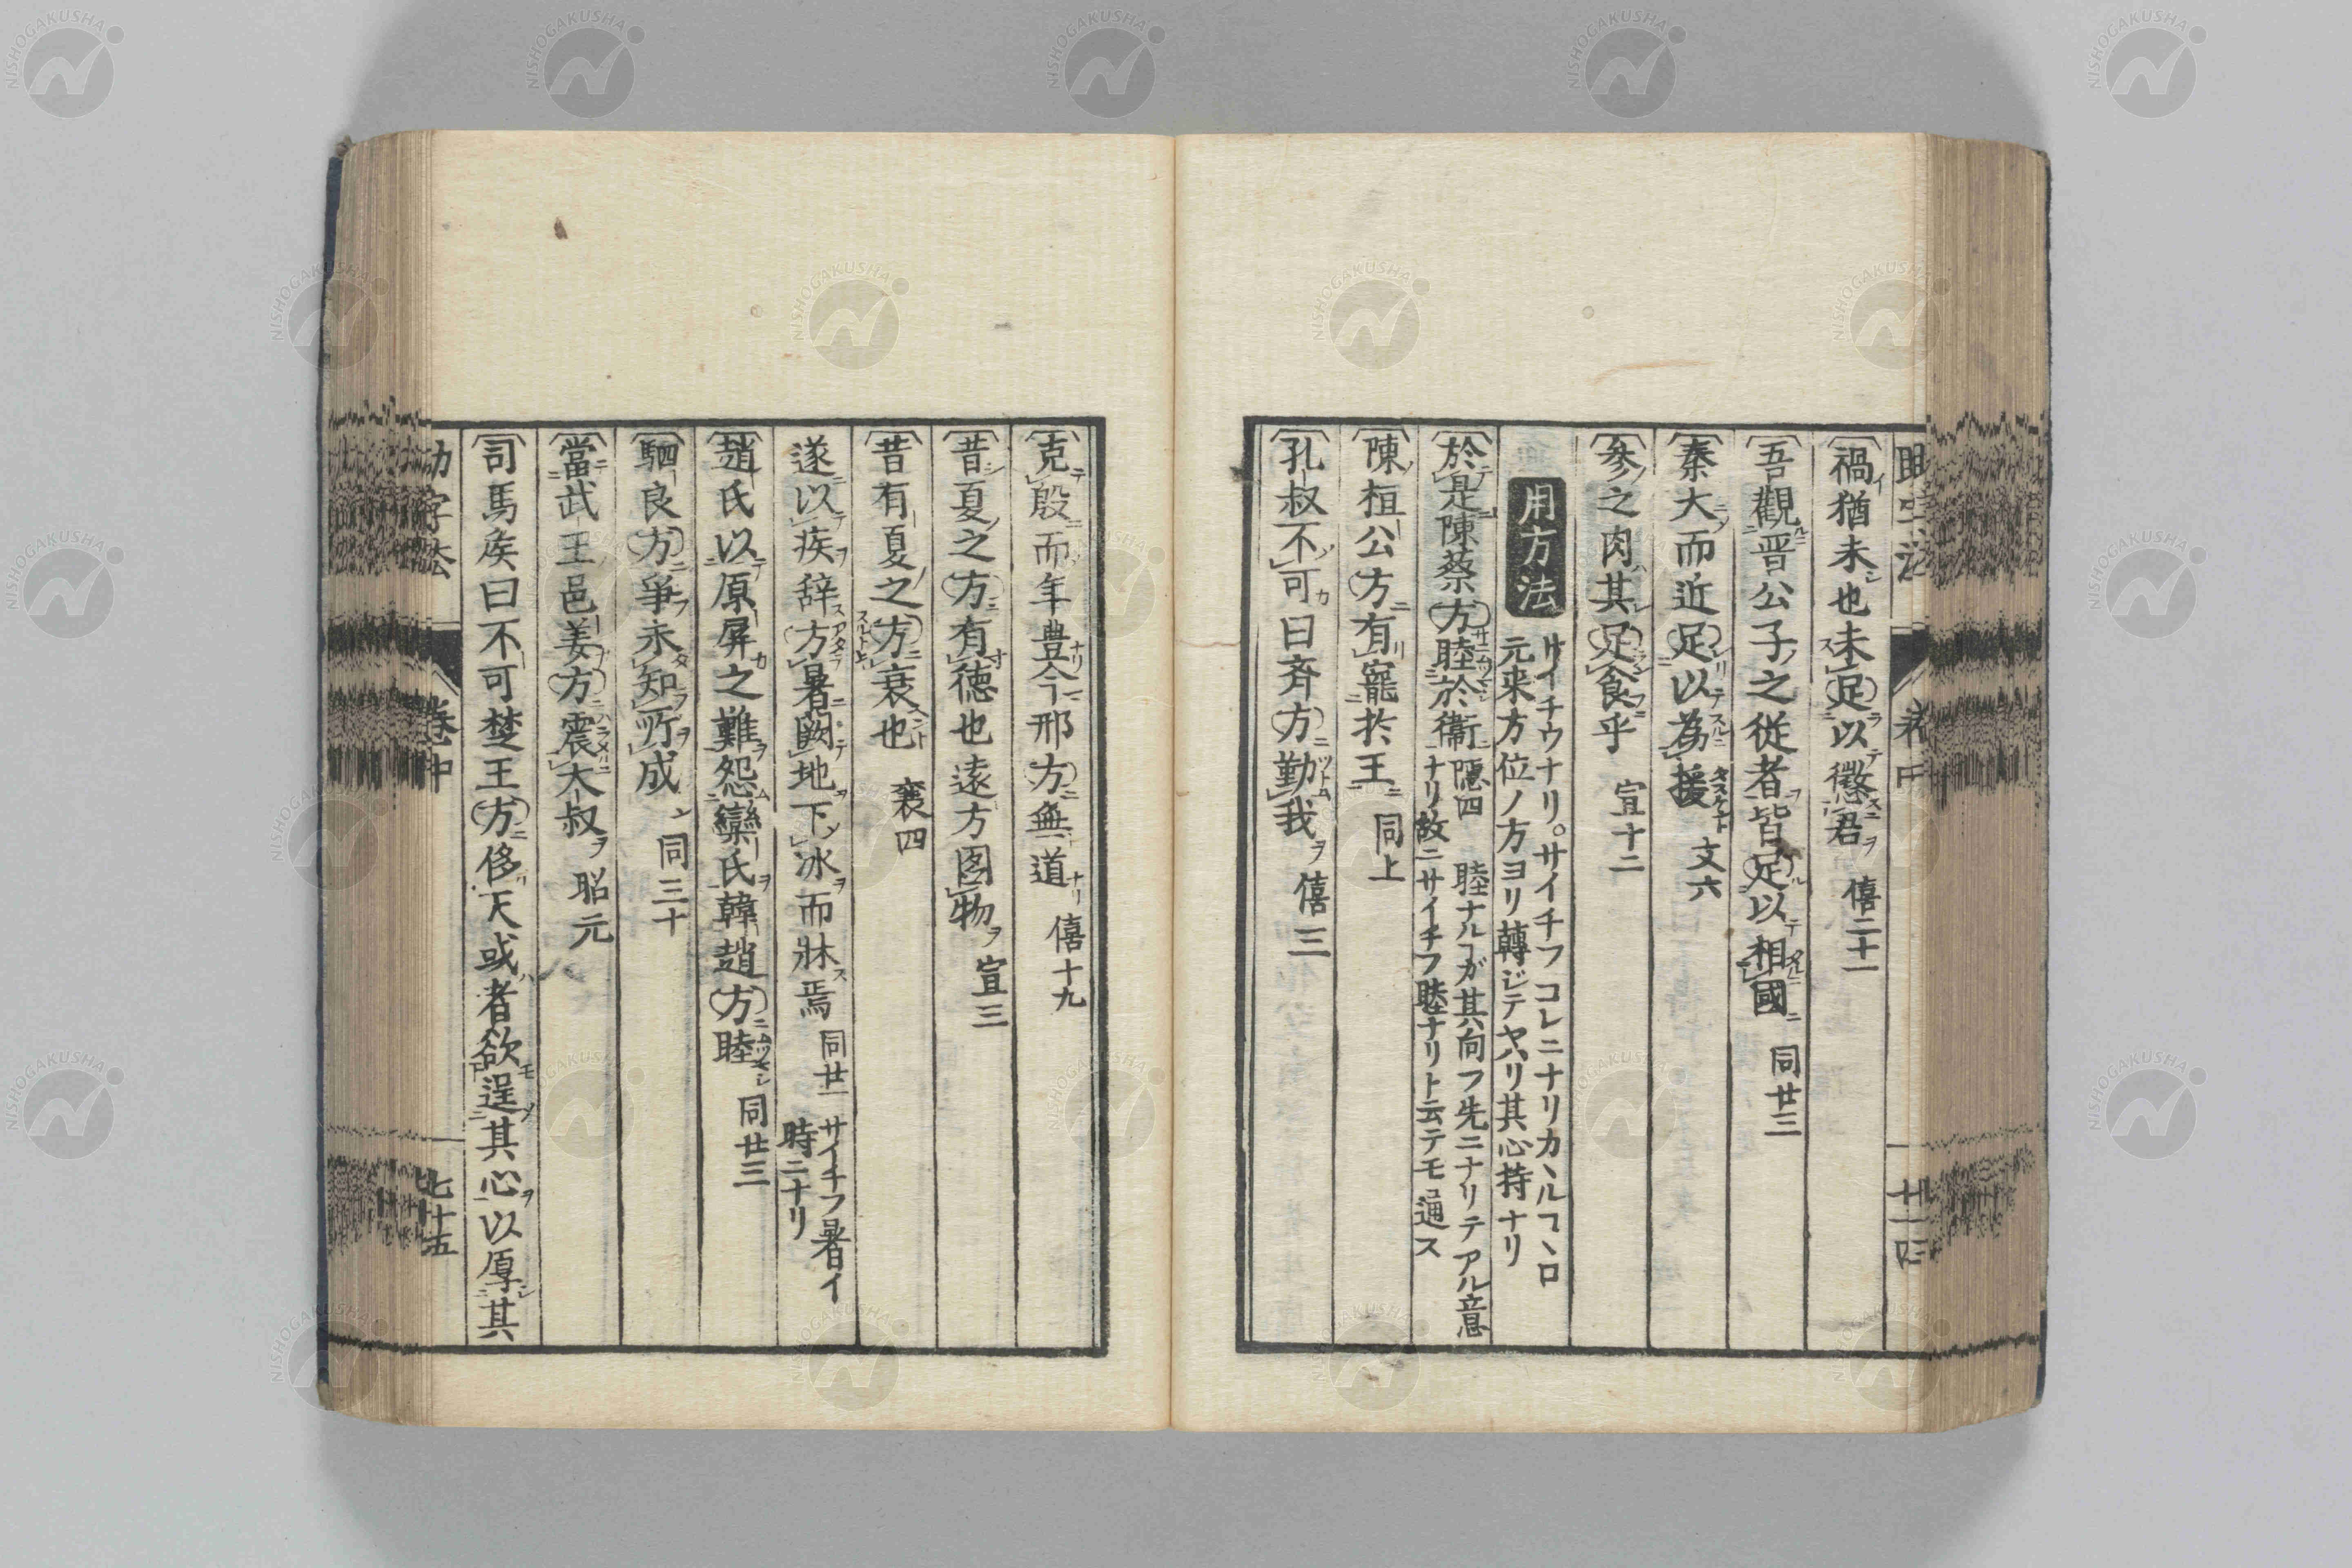 禍猶未也未足以懲君 僖二十一
吾觀晋公子之従者皆足以相國 同廿三
秦大而近足以為援 文六
參之肉其足食乎 宣十二
用方法
サイチウナリ。サイチフコレニナリカヽルヿヽロ
元来方位ノ方ヨリ轉ジテヤハリ其心持ナリ
於是陳蔡方睦於衞 隠四
睦ナルヿガ其向フ先ニナリテアル意
ナリ故ニサイチフ睦ナリト云テモ通ス
陳桓公方有寵於王 同上
孔叔不可曰斉方勤我 僖三
克殷而年豊今邢方無道 僖十九
昔夏之方有徳也遠方圖物 宣三
昔有夏之方衰也 襄四
遂以疾辞方暑闕地下冰而牀焉 同廿一
サイチフ暑イ
時ニナリ
趙氏以原屏之難怨欒氏韓趙方睦 同廿三
駟良方爭未知所成 同三十
當武王邑姜方震大叔 昭元
司馬侯曰不可楚王方侈天或者欲逞其心以厚其
助字法 巻中 七十五